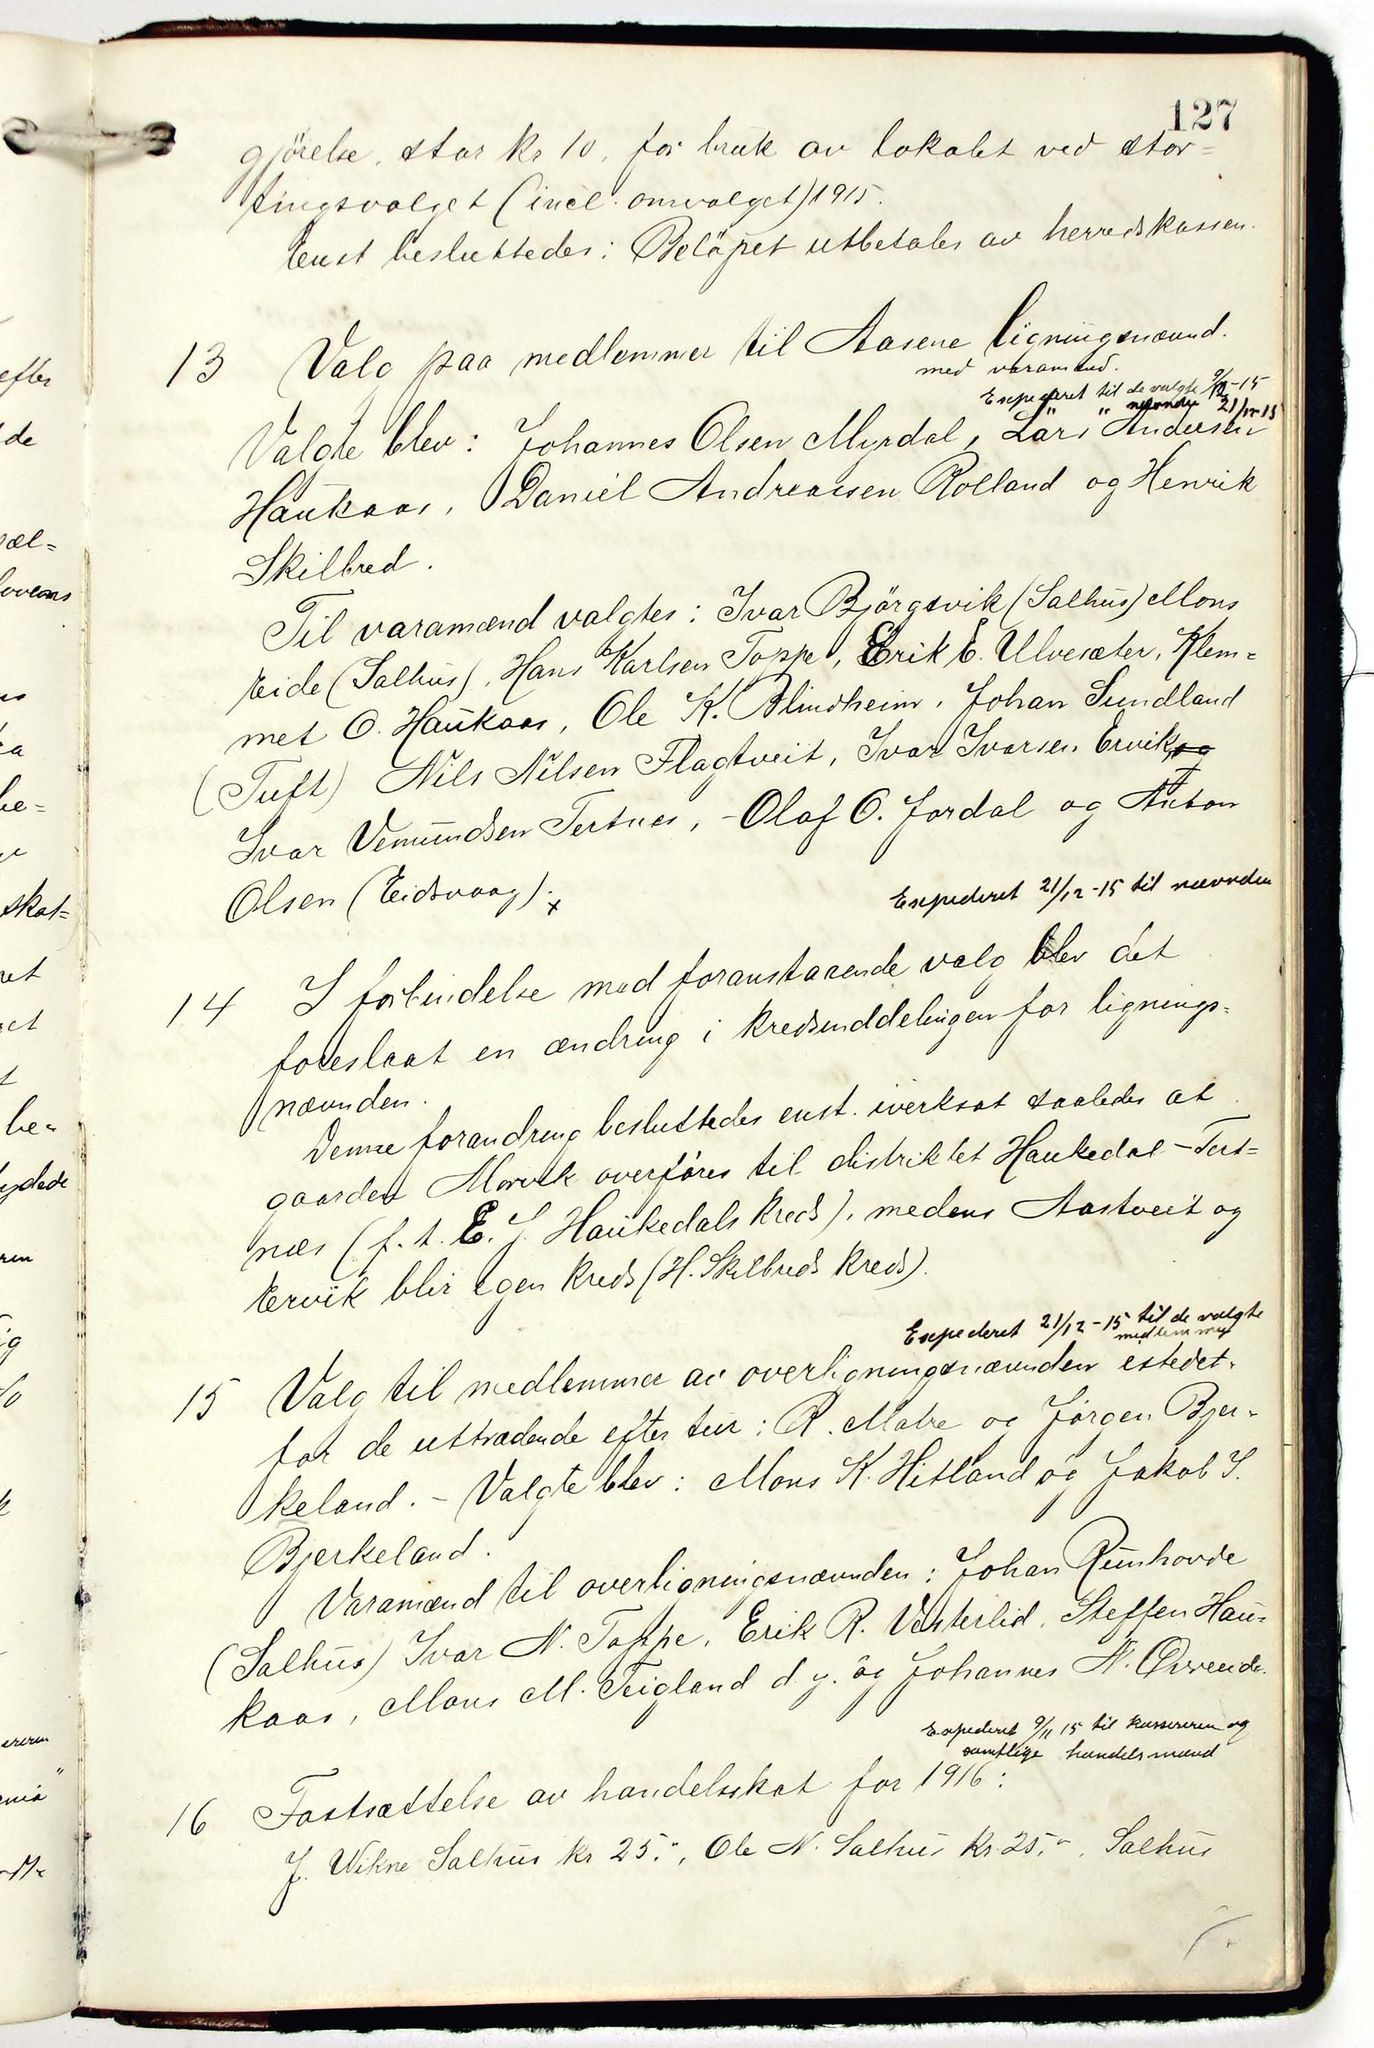 127
gjörelse, stor kr 10, for bruk av lokalet ved stor=
tingsvalget (incl. omvalget) 1915.
Enst besluttedes: Beløpet utbetales av herredskassen.
13 Valg paa medlemmer til Aasene ligningsnævnd.
med varamænd.
Expederet til de valgte 9/12-15
" " nævnden 21/12-15
Valgte blev: Johannes Olsen Myrdal, Lars Andersen
Haukaas, Daniel Andreassen Rolland og Henrik
Skilbred.
Til varamænd valgtes: Ivar Bjørgsvik (Salhus) Mons
Eide (Salhus), Hans Karlsen Toppe, Erik E. Ulvesæter, Klem=
met O. Haukaas, Ole K. Blindheim, Johan Sundland
(Tuft) Nils Nilsen Flagtveit, Ivar Ivarsen Ervik, og
Ivar Vemundsen Tertnes, - Olaf O. Jordal og Anton
Olsen (Eidsvaag). x
Expederet 21/12-15 til nævnden
14 I forbindelse med foranstaaende valg blev det
foreslaat en ændring i kredsinddelingen for lignings=
nævnden.
Denne forandring besluttedes enst. iverksat saaledes at
gaarden Morvik overføres til distriktet Haukedal - Tert=
næs (f. t. E. J. Haukedals kreds), medens Aastveit og
Ervik blir egen kreds (H. Skilbreds kreds).
Expederet 21/12-15 til de valgte
medlemmer
15 Valg til medlemmer av overligningsnævnden istedet=
for de uttrædende efter tur: R. Matre og Jørgen Bjer=
keland. - Valgte blev: Mons K. Hitland og Jakob I.
Bjerkeland.
Varamænd til overligningsnævnden: Johan Runhovde
(Salhus) Ivar N. Toppe, Erik R. Vesterlid, Steffen Hau=
kaas, Mons M. Teigland d. y. og Johannes N.
Expederet 9/11 15 til kassereren og
samtlige handelsmænd
16 Fastsættelse av handelsskat for 1916:
J. Vikne Salhus kr 25.-, Ole N. Salhus kr. 25.-, Salhus